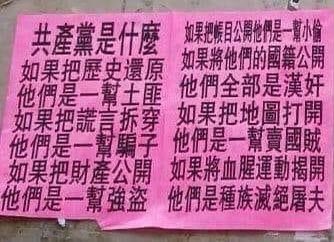 共產黨是什麼
如果把歷史還原
他們是一幫土匪
如果把謊言拆穿
他們是一幫騙子
如果把財產公開
他們是一幫強盜
如果把帳目公開他們是一幫小偷
如果將他們的國籍公開
他們全部是漢奸
如果把地圖打開
他們是一幫賣國賊
如果將血腥運動揭開
他們是種族滅絕屠夫